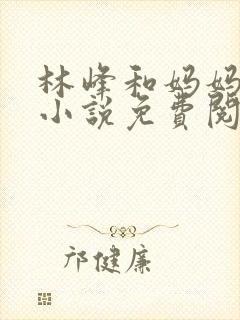 林峰和妈妈
小说免费阅
邝健廉